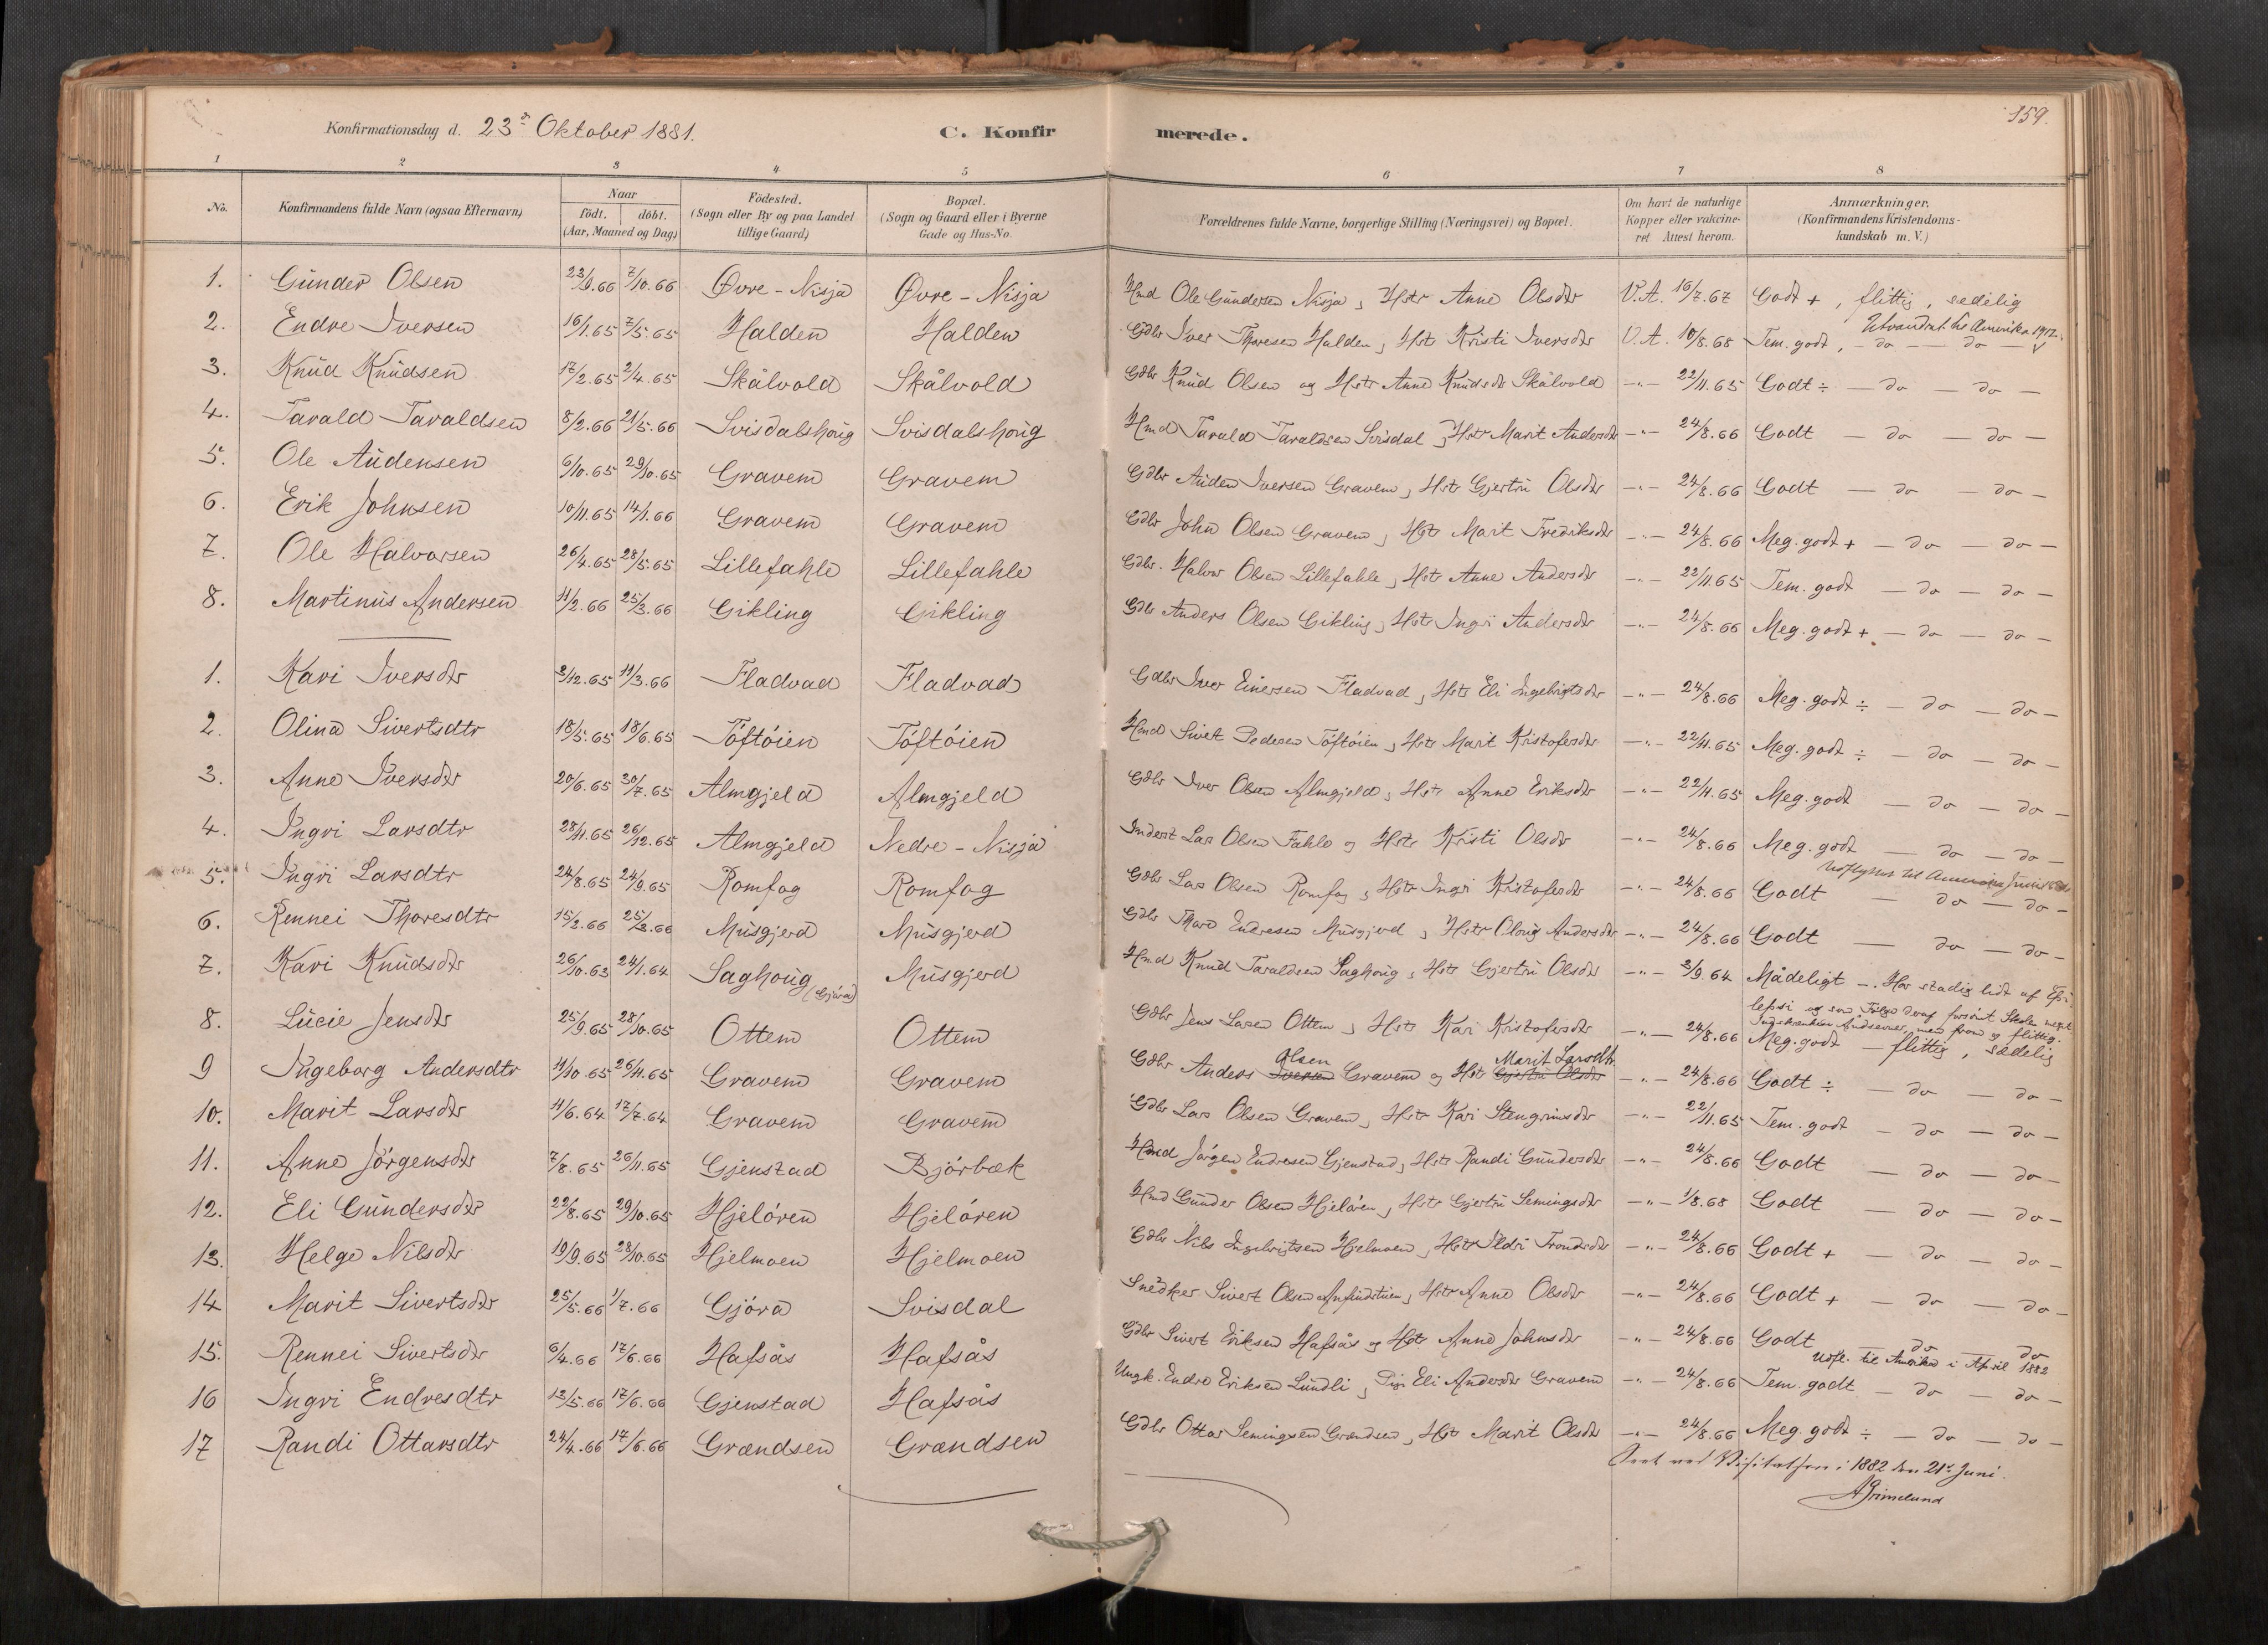 159.
Konfirmationsdag d. 23de Oktober 1881. C. Konfirmerede.
1 2 3 4 5 6 7 8
No. Konfirmandens fulde Navn (ogsaa Efternavn) Naar födt. döbt. (Aar, Maaned og Dag) Födested. (Sogn eller By og paa Landet tillige Gaard) Bopæl. (Sogn og Gaard eller i Byerne Gade og Hus-No. Forældrenes fulde Navne, borgerlige Stilling (Næringsvei) og Bopæl. Om havt de naturlige Kopper eller vakcineret Attest herom. Anmærkninger. (Konfirmandens Kristendomskundskab m. V.)
1. Gunder Olsen 23/9.66 7/10.66 Øvre-Nisja Øvre-Nisja Hmd Ole Gundersen Nisja, Hstr Anne Olsdtr V.A. 16/7.67 Godt +, flittig, sedelig
Utvandret til Amerika 1912.
2. Endre Iversen 16/1.65 7/5.65 Halden Halden Gdbr Iver Thoresen Halden, Hstr Kristi Iversdtr V.A. 10/8.68 Tem. godt, - do - do - v
3. Knud Knudsen 17/2.65 2/4.65 Skålvold Skålvold Gdbr Knud Olsen og Hstr Anne Knudsdtr Skålvold -"- 22/11.65 Godt ÷ - do - do -
4. Tarald Taraldsen 8/2.66 21/5.66 Svisdalshoug Svisdalshoug Hmd Tarald Taraldsen Svisdal, Hstr Marit Andersdtr -"- 24/8.66 Godt - do - do -
5. Ole Audensen 6/10.65 29/10.65 Gravem Gravem Gdbr Auden Iversen Gravem, Hstr Gjertru Olsdtr -"- 24/8.66 Godt - do - do -
6. Erik Johnsen 10/11.65 14/1.66 Gravem Gravem Gdbr John Olsen Gravem, Hstr Marit Fredriksdtr -"- 24/8.66 Meg. godt + - do - do -
7. Ole Halvorsen 26/4.65 28/5.65 Lillefahle Lillefahle Gdbr. Halvor Olsen Lillefahle, Hstr Anne Andersdtr -"- 22/11.65 Tem. godt - do - do -
8. Martinus Andersen 11/2.66 25/3.66 Gikling Gikling Gdbr Anders Olsen Gikling, Hstr Ingri Andersdtr -"- 24/8.66 Meg. godt + - do - do -
1. Kari Iversdtr 3/12.65 11/3.66 Fladvad Fladvad Gdbr Iver Einersen Fladvad, Hstr Eli Ingebrigtsdtr -"- 24/8.66 Meg. godt ÷ - do - do -
2. Olina Sivertsdtr 18/5.65 18/6.65 Töftöien Töftöien Hmd Sivert Pedersen Töftöien, Hstr Marit Kristofersdtr -"- 22/11.65 Meg. godt ÷ - do - do -
3. Anne Iversdtr 20/6.65 30/7.65 Almgjeld Almgjeld Gdbr Iver Olsen Almgjeld, Hstr Anne Eriksdtr -"- 22/11.65 Meg. godt - do - do -
4. Ingri Larsdtr 28/11.65 26/12.65 Almgjeld Nedre-Nisja Inderst Lars Olsen Fahle og Hstr Kristi Olsdtr -"- 24/8.66 Meg. godt - do - do -
Udflyttet til Amerika Juni
5. Ingri Larsdtr 24/8.65 24/9.65 Romfog Romfog Gdbr Lars Olsen Romfog, Hstr Ingri Kristofersdtr -"- 24/8.66 Godt - do - do -
6. Rennei Thoresdtr 15/2.66 25/3.66 Musgjerd Musgjerd Gdbr Thore Endresen Musgjerd, Hstr Oloug Andersdtr -"- 24/8.66 Godt - do - do -
7. Kari Knudsdtr 26/10.63 24/1.64 Saghoug (Gjöra) Musgjerd Hmd Knud Taraldsen Saghoug, Hstr Gjertru Olsdtr -"- 3/9.64 Mådeligt -. Har stadig lidt af Epi-
lepsi og som Følge deraf forsömt Skolen meget
Indskrænkede Åndsevner, men from og flittig.
8. Lucie Jensdtr 25/9.65 28/10.65 Ottem Ottem Gdbr Jens Larsen Ottem, Hstr Kari Kristofersdtr -"- 24/8.66 Meg. godt - flittig, sædelig
9 Ingeborg Andersdtr 11/10.65 26/11.65 Gravem Gravem Gdbr Anders Iversen Olsen Gravem og Hstr Gjertru Olsdtr Marit Larsdtr -"- 24/8.66 Godt ÷ - do - do -
10. Marit Larsdtr 11/6.64 17/7.64 Gravem Gravem Gdbr Lars Olsen Gravem, Hstr Kari Stengrimsdtr -"- 22/11.65 Tem. godt - do - do -
11. Anne Jörgensdtr 7/8.65 26/11.65 Gjenstad Bjórbæk Hmd Jórgen Endresen Gjenstad, Hstr Randi Gundersdtr -"- 24/8.66 Godt - do - do -
12. Eli Gundersdtr 22/8.65 29/10.65 Hjelóren Hjelóren Hmd Gunder Olsen Hjelóren, Hstr Gjertru Semingsdtr -"- 1/8.68 Godt - do - do -
13. Helge Nilsdtr 19/9.65 28/10.65 Hjelmoen Hjelmoen Gdbr Nils Ingebrigtsen Hjelmoen, Hstr Ildri Trondsdtr -"- 24/8.66 Godt + - do - do -
14 Marit Sivertsdtr 25/5.66 1/7.66 Gjöra Svisdal Snedker Sivert Olsen Anfindstuen, Hstr Anne Olsdtr -"- 24/8.66 Godt + - do - do -
15. Rennei Sivertsdtr 6/4.66 17/6.66 Hafsås Hafsås Gdbr Sivert Eriksen Hafsås og Hstr Anne Johnsdtr -"- 24/8.66 Godt - do - do
Udfl. til Amerika i April 1882
16 Ingri Endresdtr 13/5.66 17/6.66 Gjenstad Hafsås Ungk. Endre Eriksen Lundli, Pige Eli Andersdtr Gravem -"- 24/8.66 Tem. godt - do - do -
17 Randi Ottarsdtr 24/4.66 17/6.66 Grændsen Grændsen Gdbr Ottar Semingsen Grændsen, Hstr Marit Olsdtr -"- 24/8.66 Meg. godt ÷ - do - do -
Seet ved Visitatsen i 1882 den 21de Juni.
AGrimelund